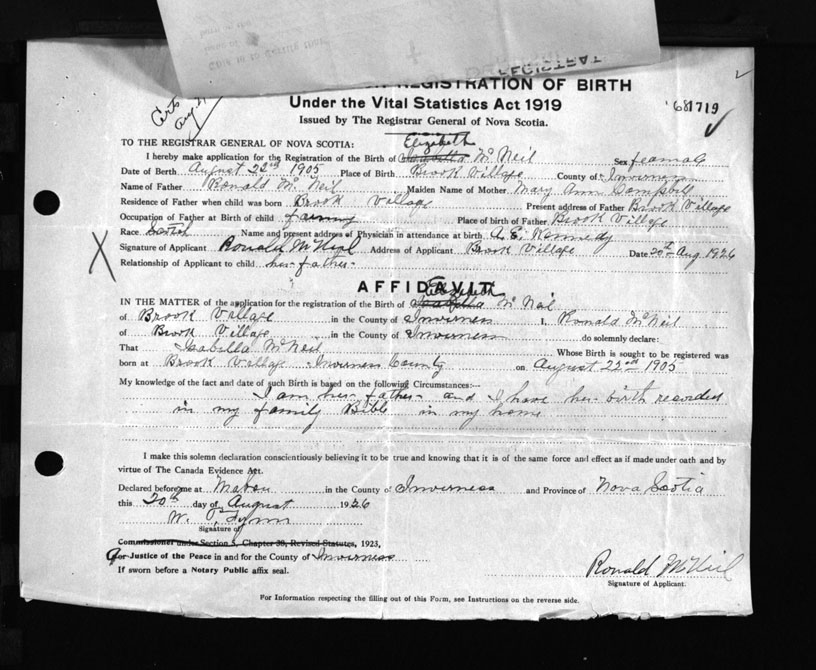 REGISTRATION OF BIRTH
Under the Vital Statistics Act 1919
681719
Issued by The Registrar General of Nova Scotia.
TO THE REGISTRAR GENERAL OF NOVA SCOTIA:
Elizabeth
I hereby make application for the Registration of the Birth of Isabella McNeil Sex feamal
Date of Birth August 22nd 1905 Place of Birth Brook Village County of Inverness
Name of Father Ronald McNeil Maiden Name of Mother Mary Ann Campbell
Residence of Father when child was born Brook Village Present address of Father Brook Village
Occupation of Father at Birth of child farming Place of birth of Father Brook Village
Race Scotch Name and present address of Physician in attendance at birth A. E. Kennedy
Signature of Applicant Ronald McNeil Address of Applicant Brook Village Date 20th Aug 1926
Relationship of Applicant to child her father
AFFIDAVIT
Elizabeth
IN THE MATTER of the application for the registration of the Birth of Isabella McNeil
of Brook Village in the County of Inverness I, Ronald McNeil
of Brook Village in the County of Inverness do solemnly declare:
That Isabella McNeil Whose Birth is sought to be registered was
born at Brook Village Inverness County on August 22nd 1905
My knowledge of the fact and date of such Birth is based on the following Circumstances:—
I am her father and I have her birth recorded
in my family Bible in my home
I make this solemn declaration conscientiously believing it to be true and knowing that it is of the same force and effect as if made under oath and by
virtue of The Canada Evidence Act.
Declared before me at Mabou in the County of Inverness and Province of Nova Scotia
this 20th day of August 1926
Signature of
Commissioner under Section 5, Chapter 38, Revised Statutes, 1923,
or Justice of the Peace in and for the County of Inverness
If sworn before a Notary Public affix seal.
Ronald McNeil
Signature of Applicant.
For Information respecting the filling out of this Form, see Instructions on the reverse side.